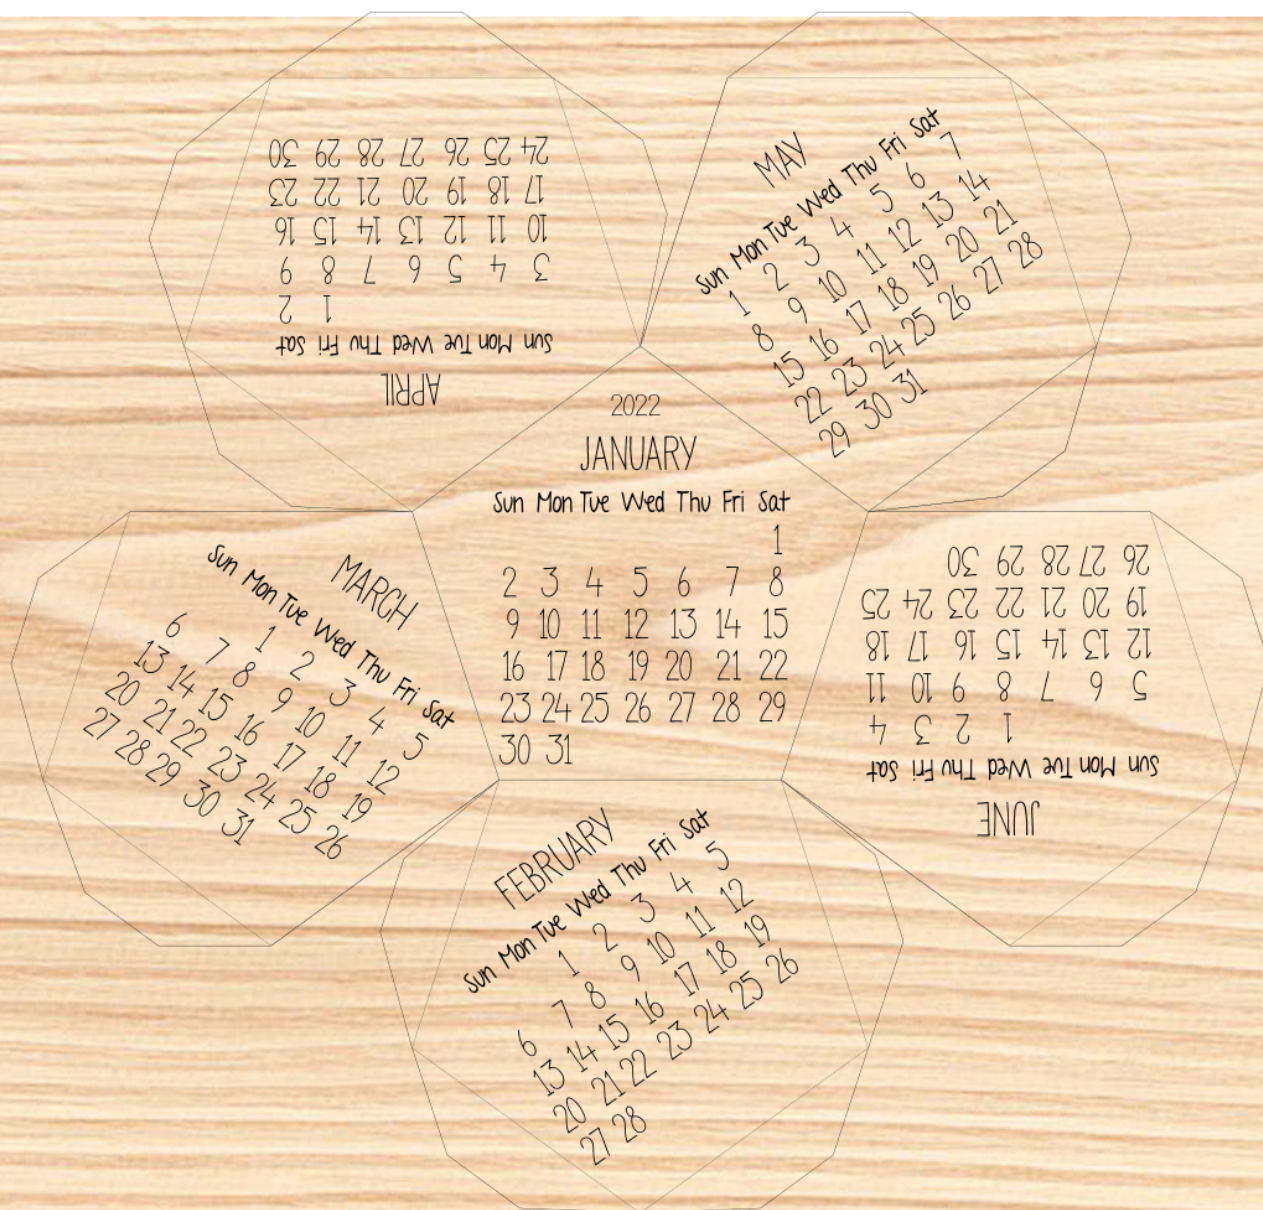 APRIL
Sun Mon Tue Wed Thu Fri Sat
1 2
3 4 5 6 7 8 9
10 11 12 13 14 15 16
17 18 19 20 21 22 23
24 25 26 27 28 29 30
MAY
Sun Mon Tue Wed Thu Fri Sat
1 2 3 4 5 6 7
8 9 10 11 12 13 14
15 16 17 18 19 20 21
22 23 24 25 26 27 28
29 30 31
2022
JANUARY
Sun Mon Tue Wed Thu Fri Sat
1
2 3 4 5 6 7 8
9 10 11 12 13 14 15
16 17 18 19 20 21 22
23 24 25 26 27 28 29
30 31
MARCH
Sun Mon Tue Wed Thu Fri Sat
1 2 3 4 5
6 7 8 9 10 11 12
13 14 15 16 17 18 19
20 21 22 23 24 25 26
27 28 29 30 31
JUNE
Sun Mon Tue Wed Thu Fri Sat
1 2 3 4
5 6 7 8 9 10 11
12 13 14 15 16 17 18
19 20 21 22 23 24 25
26 27 28 29 30
FEBRUARY
Sun Mon Tue Wed Thu Fri Sat
1 2 3 4 5
6 7 8 9 10 11 12
13 14 15 16 17 18 19
20 21 22 23 24 25 26
27 28